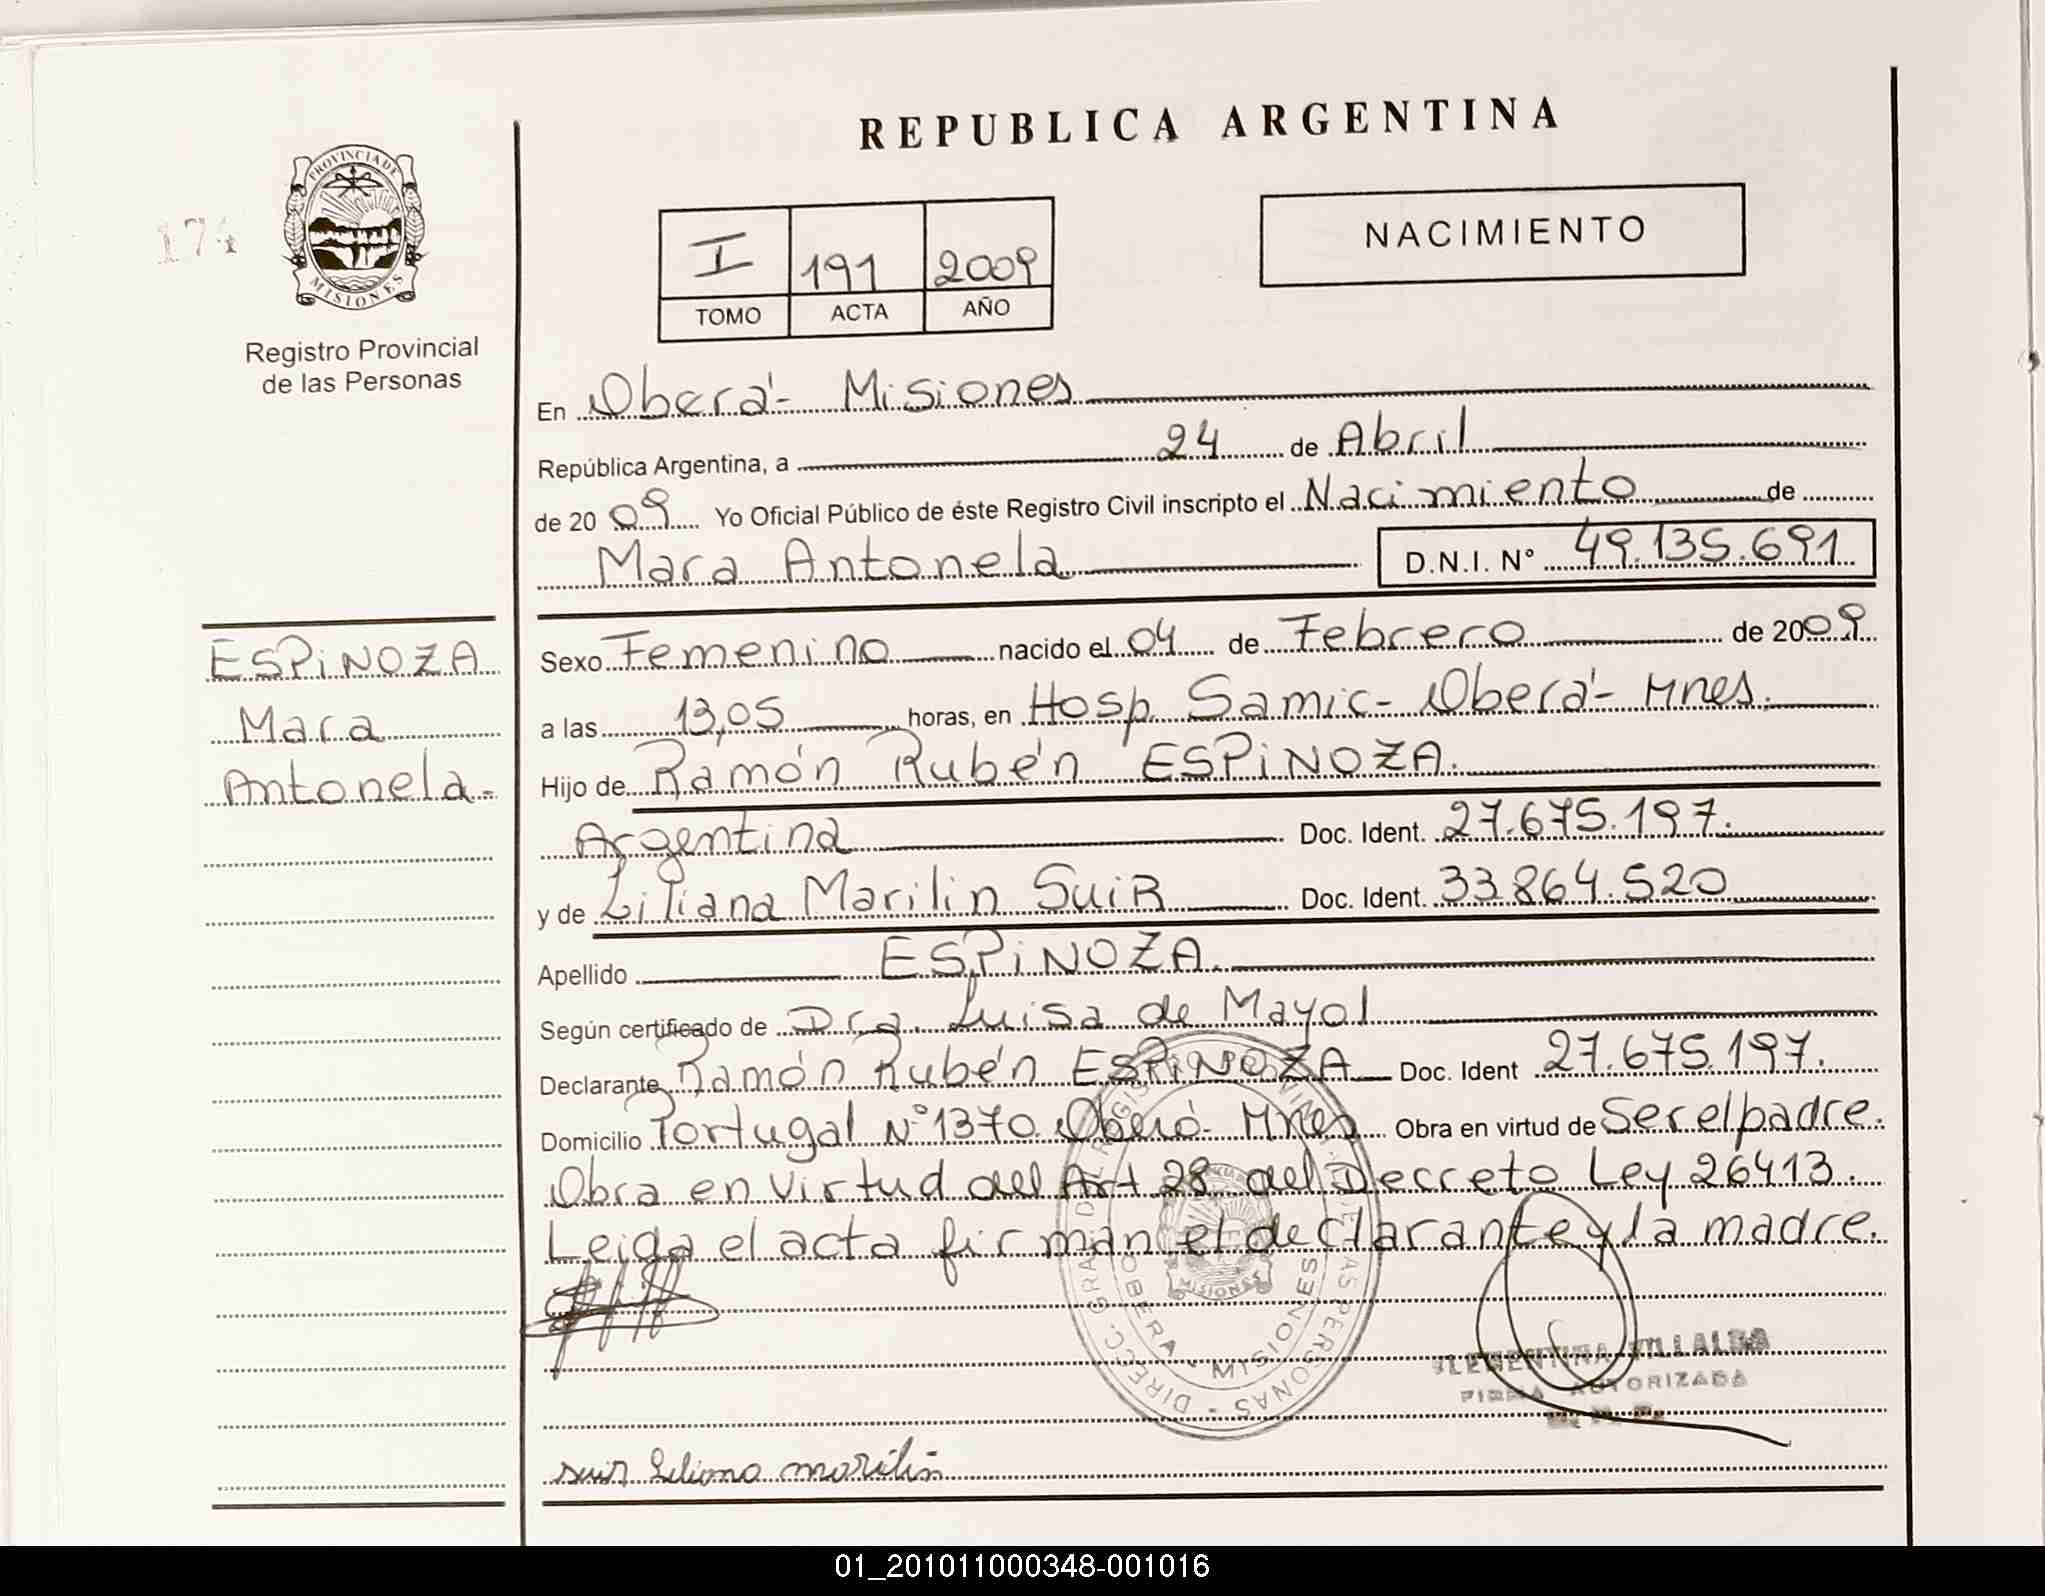 REPUBLICA ARGENTINA
PROVINCIA DE
MISIONES
174
Registro Provincial
de las Personas
I 191 2009
TOMO ACTA AÑO
NACIMIENTO
En Oberá - Misiones
República Argentina, a 24 de Abril
de 2009 Yo Oficial Público de éste Registro Civil inscripto el Nacimiento de
Mara Antonela D.N.I. N° 49.135.691
ESPINOZA
Mara
Antonela.-
Sexo Femenino nacido el 04 de Febrero de 2009
a las 13,05 horas, en Hosp Samic - Oberá - Mnes.
Hijo de Ramón Rubén ESPINOZA.
Argentina Doc. Ident. 27.675.197.
y de Liliana Marilin SuiR Doc. Ident. 33.864.520
Apellido ESPINOZA.
Según certificado de Dra. Luisa de Mayol
Declarante Ramón Rubén ESPINOZA Doc. Ident 27.675.197.
Domicilio Portugal N° 1370. Oberá - Mnes Obra en virtud de Ser el padre.
Obra en virtud del Art 28 del Decreto Ley 26413.
Leida el acta firman el declarante y la madre.
OBERA - MISIONES
CLEMENTINA VILLALBA
FIRMA AUTORIZADA
suir Liliana marilin
01_201011000348-001016